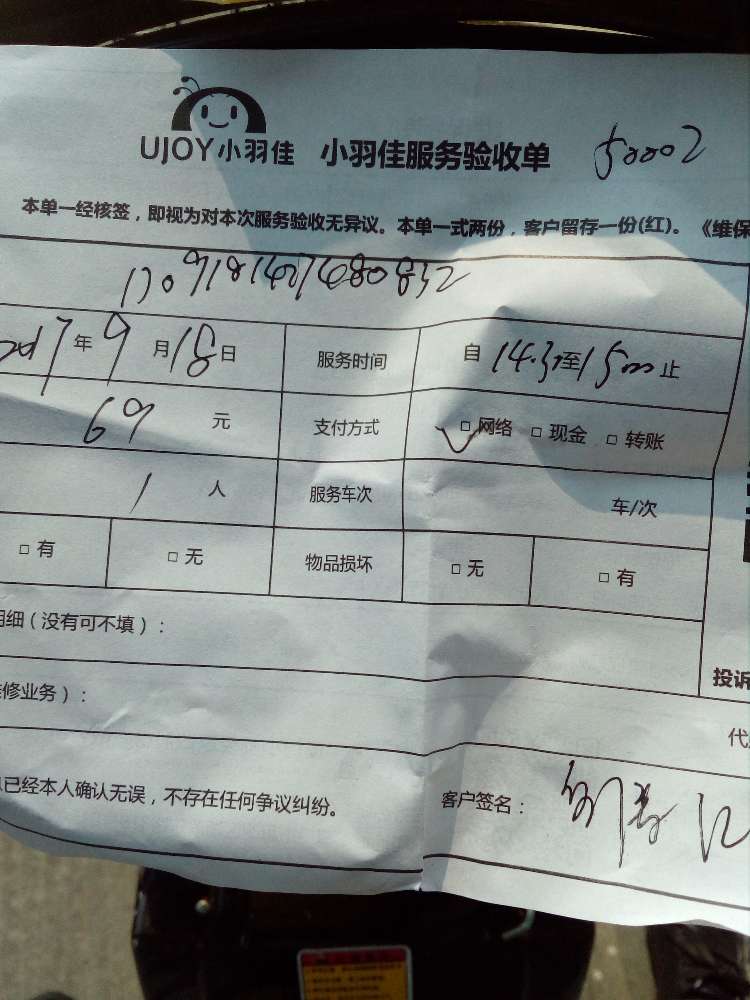 UJOY小羽佳 小羽佳服务验收单 50002
本单一经核签，即视为对本次服务验收无异议。本单一式两份，客户留存一份(红)。《维保
2017年9月18日 服务时间 自14.30至1500止
69元 支付方式 □网络 □现金 □转账
1人 服务车次 车/次
□有 □无 物品损坏 □无 □有
明细（没有可不填）：
修业务）： 投诉
代
已经本人确认无误，不存在任何争议纠纷。 客户签名：